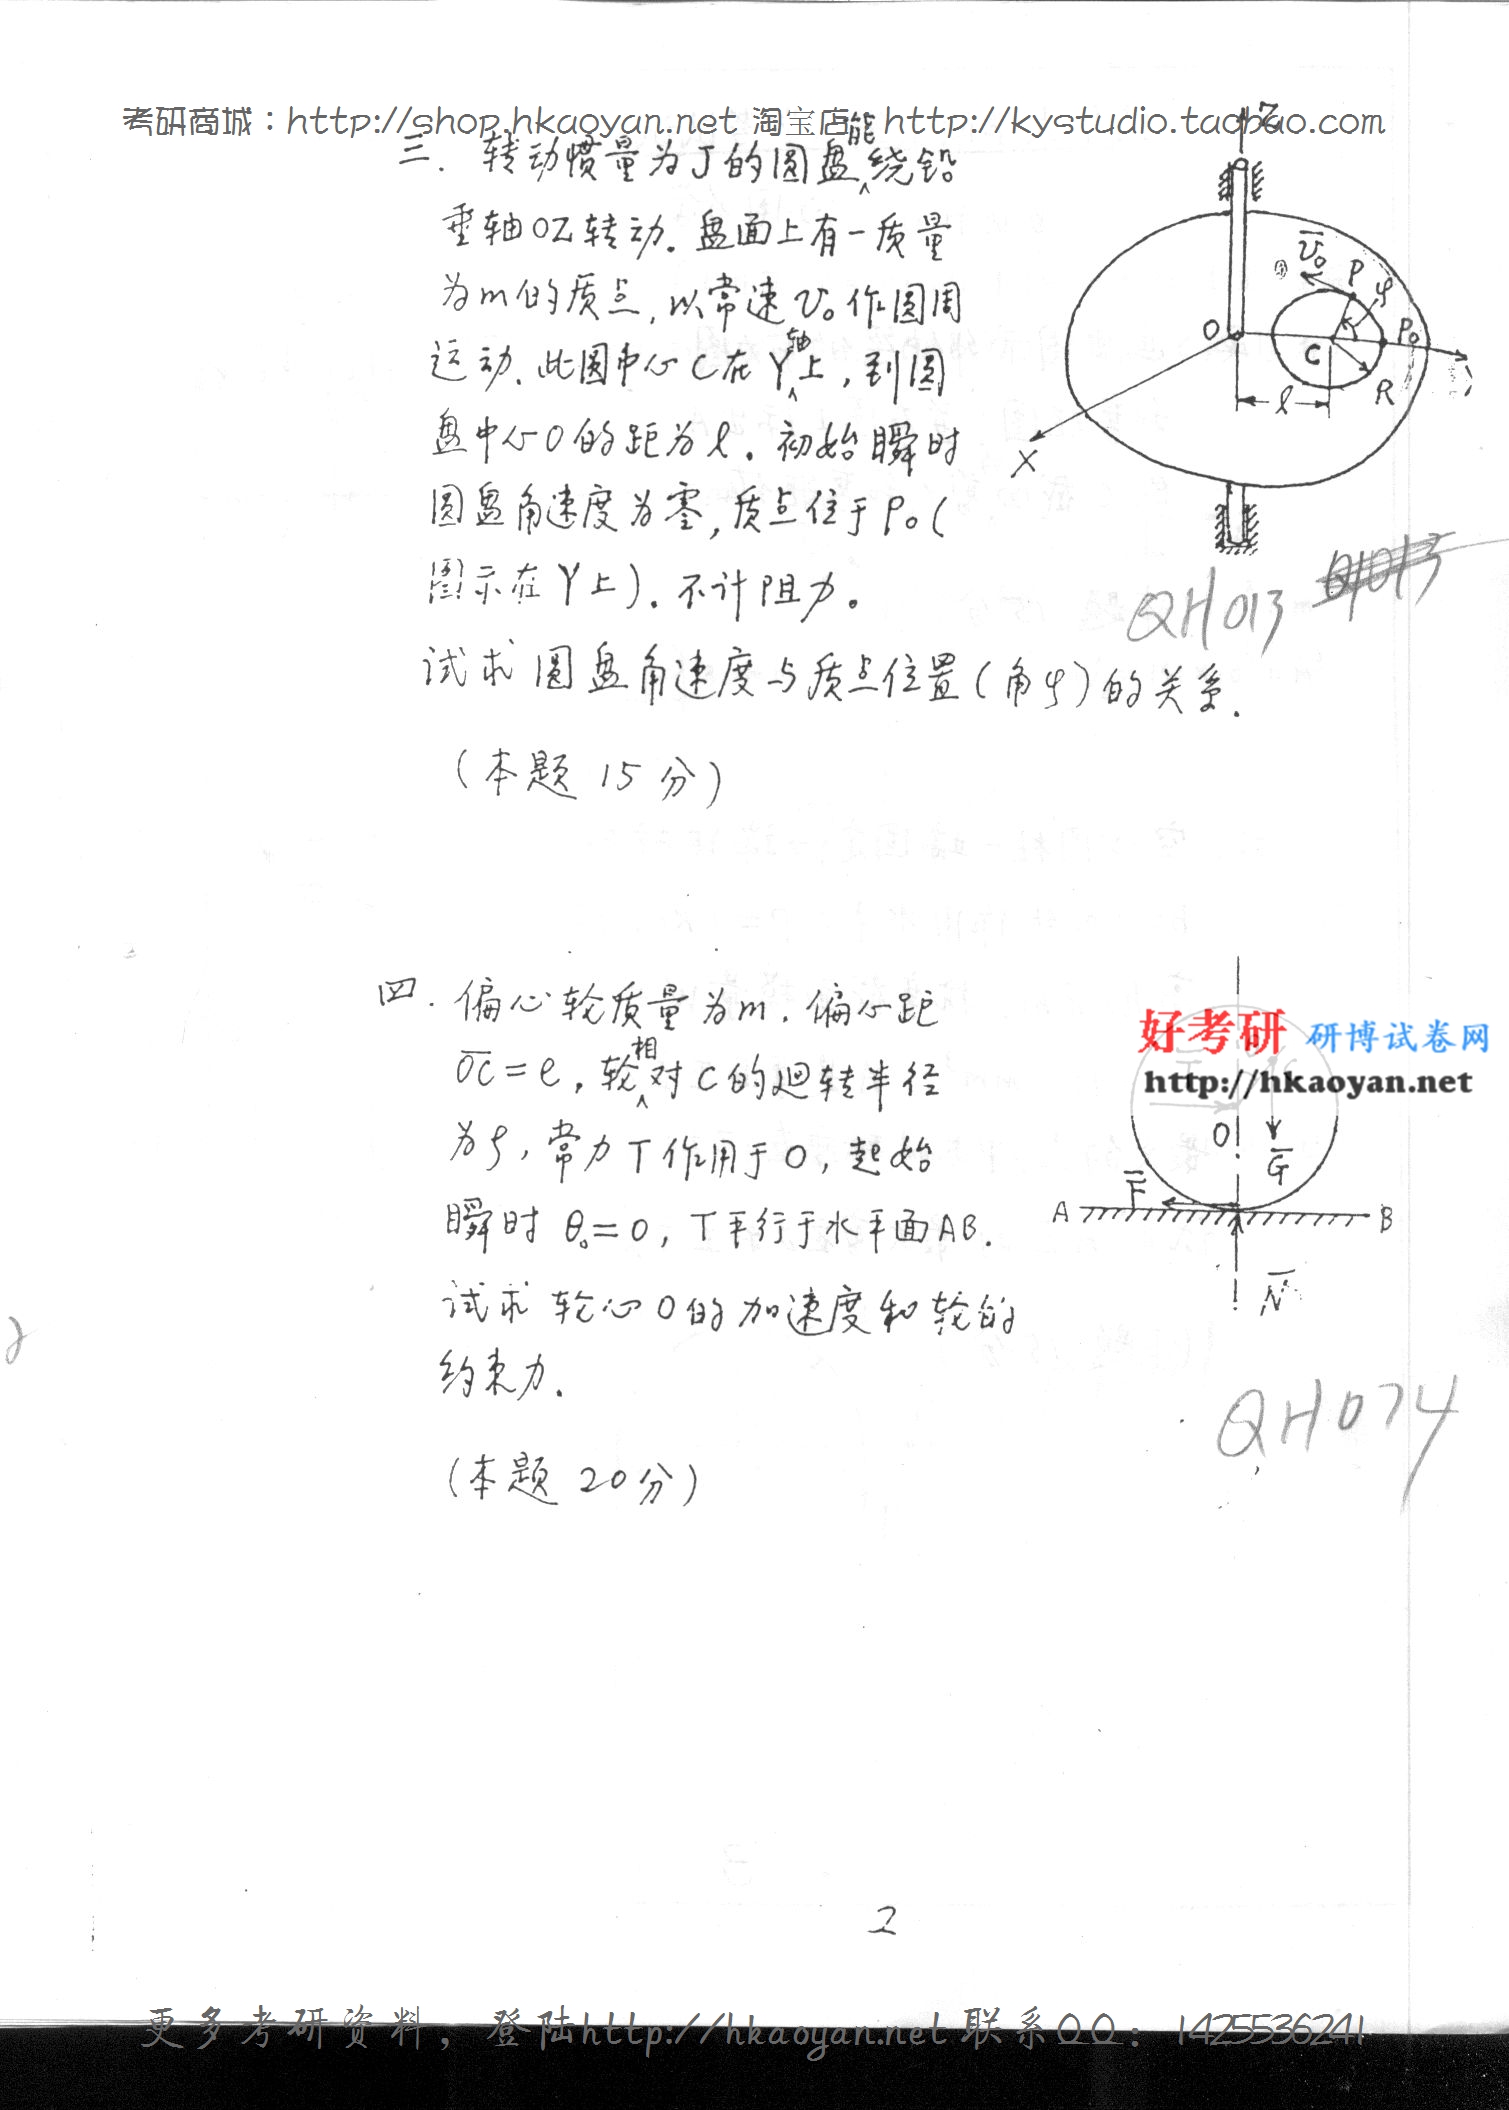 考研商城：http://shop.hkaoyan.net 淘宝店：http://kystudio.taobao.com
三. 转动惯量为J的圆盘能绕铅
垂轴OZ转动. 盘面上有一质量
为m的质点, 以常速v₀作圆周
运动. 此圆中心C在Y轴上, 到圆
盘中心O的距为l. 初始瞬时
圆盘角速度为零, 质点位于P₀(
图示在Y上). 不计阻力.
试求圆盘角速度与质点位置(角φ)的关系.
(本题 15分)
Z
v̄₀
P
φ
O
C
P₀
R
l
X
QH013
QH013
四. 偏心轮质量为m. 偏心距
O̅C̅=e, 轮相对C的迴转半径
为ρ, 常力T作用于O, 起始
瞬时 θ₀=0, T平行于水平面AB.
试求轮心O的加速度和轮的
约束力.
(本题 20分)
好考研 研博试卷网
http://hkaoyan.net
O
G̅
F̅
A
B
N̅
QH074
2
更多考研资料，登陆http://hkaoyan.net 联系QQ：1425536241